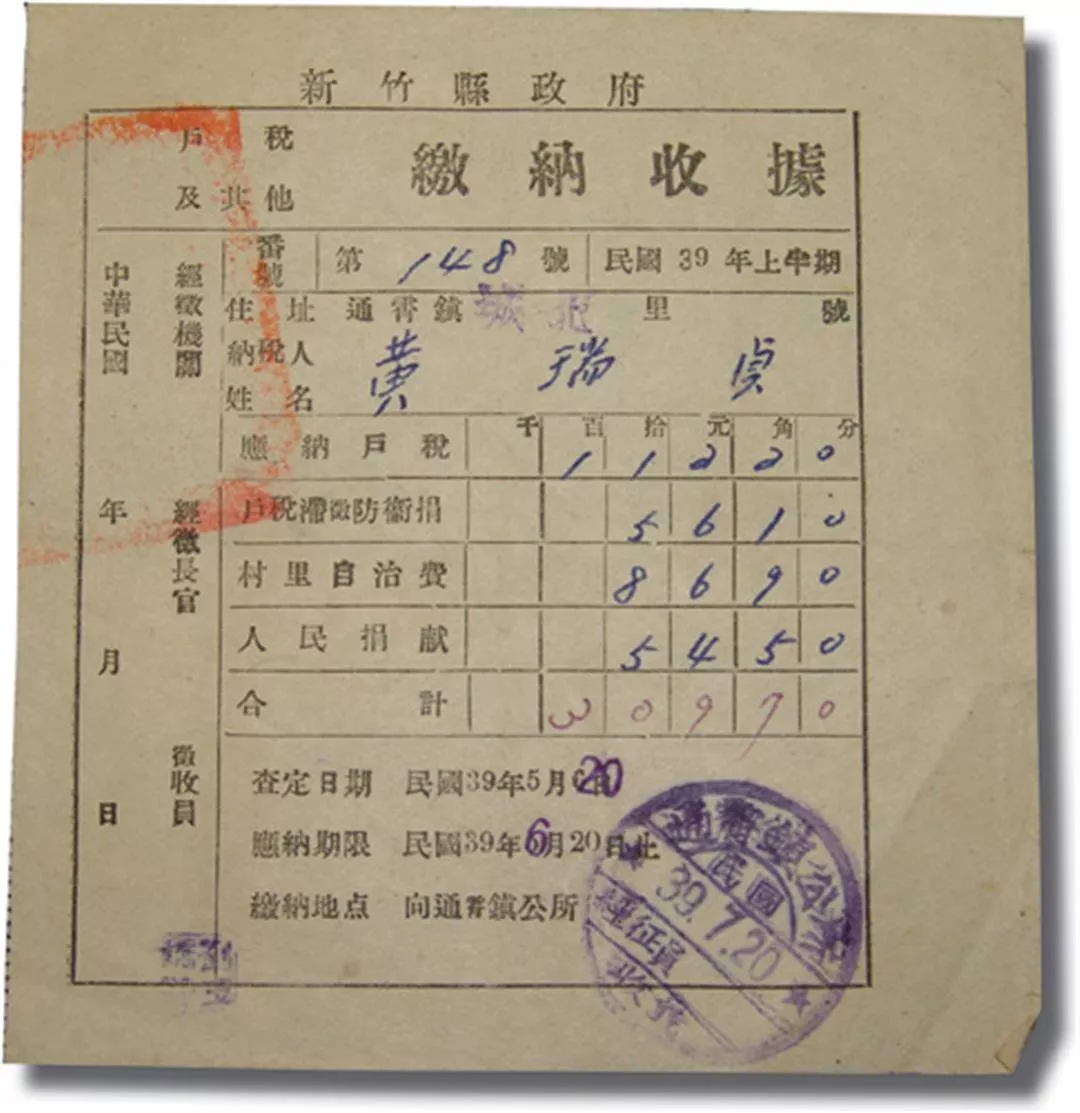 新竹縣政府
戶稅
及其他
繳納收據
番號 第 148 號 民國 39 年上半期
住址 通霄鎮 城北 里 號
納稅人姓名 黃瑞貞
千 百 拾 元 角 分
應納戶稅 1 1 2 2 0
戶稅滯徵防衛捐 5 6 1 0
村里自治費 8 6 9 0
人民捐献 5 4 5 0
合計 3 0 9 7 0
查定日期 民國39年5月20
應納期限 民國39年6月20日止
繳納地点 向通霄鎮公所
經徵機關
經徵長官
徵收員
中華民國 年 月 日
通霄鎮公所
民國
39.7.20
經征員
收訖